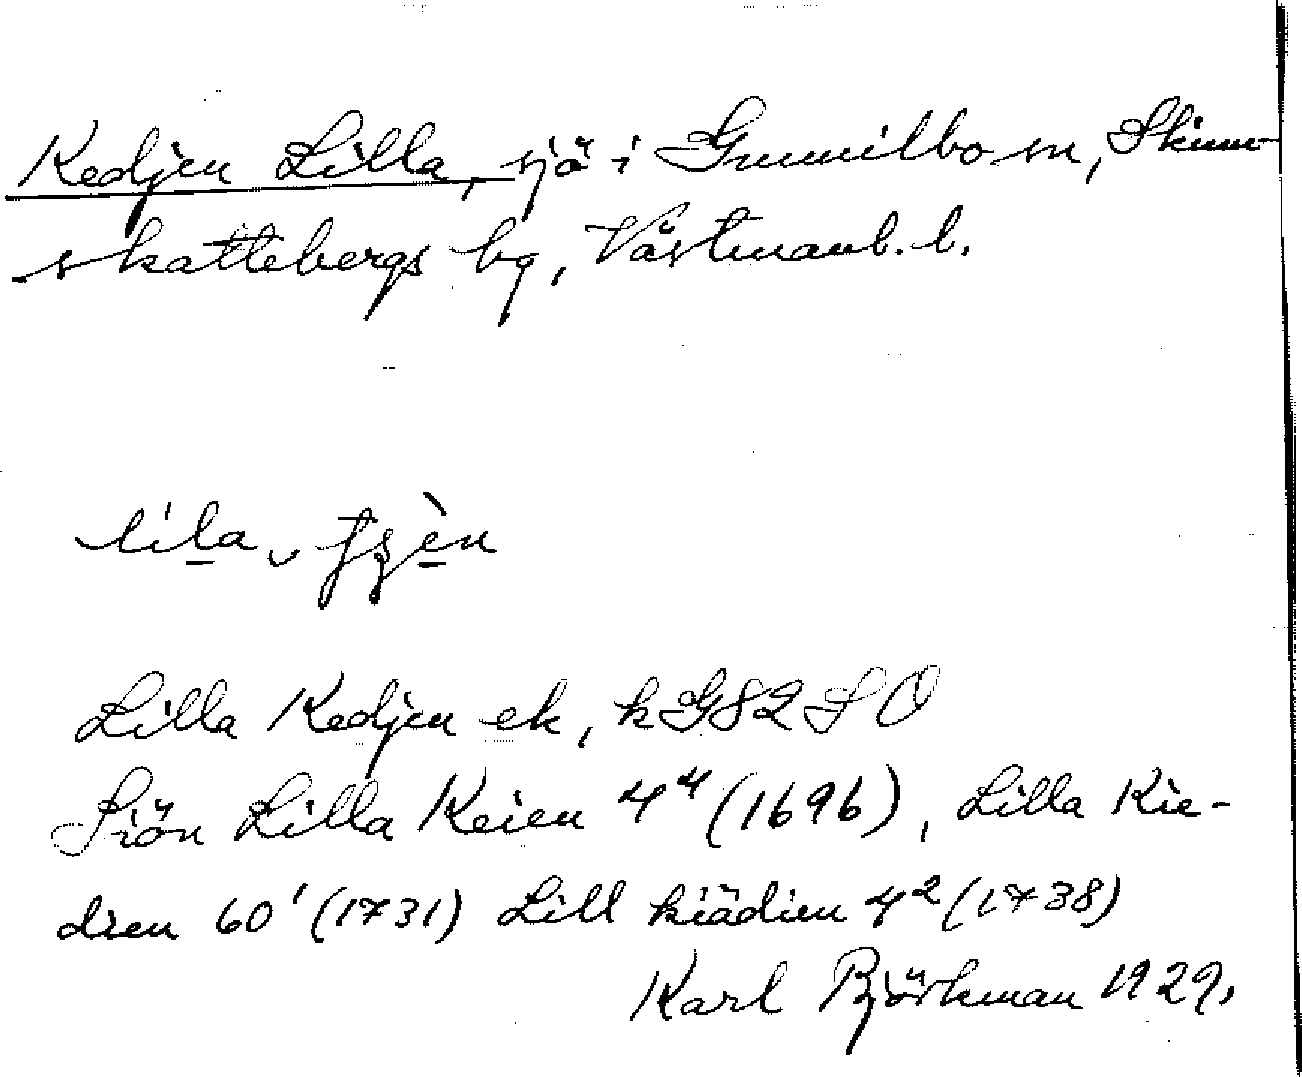 Kedjen Lilla, sjö i Gunnilbo sn, Skinn-
skattebergs bg, Västmanl. l.
Lilla Kedjen ek, k G82 S O
Siön Lilla Keien 4⁴ (1696), Lilla Kie-
dien 60¹ (1731) Lill kiädien 4² (1738)
Karl Björkman 1929.